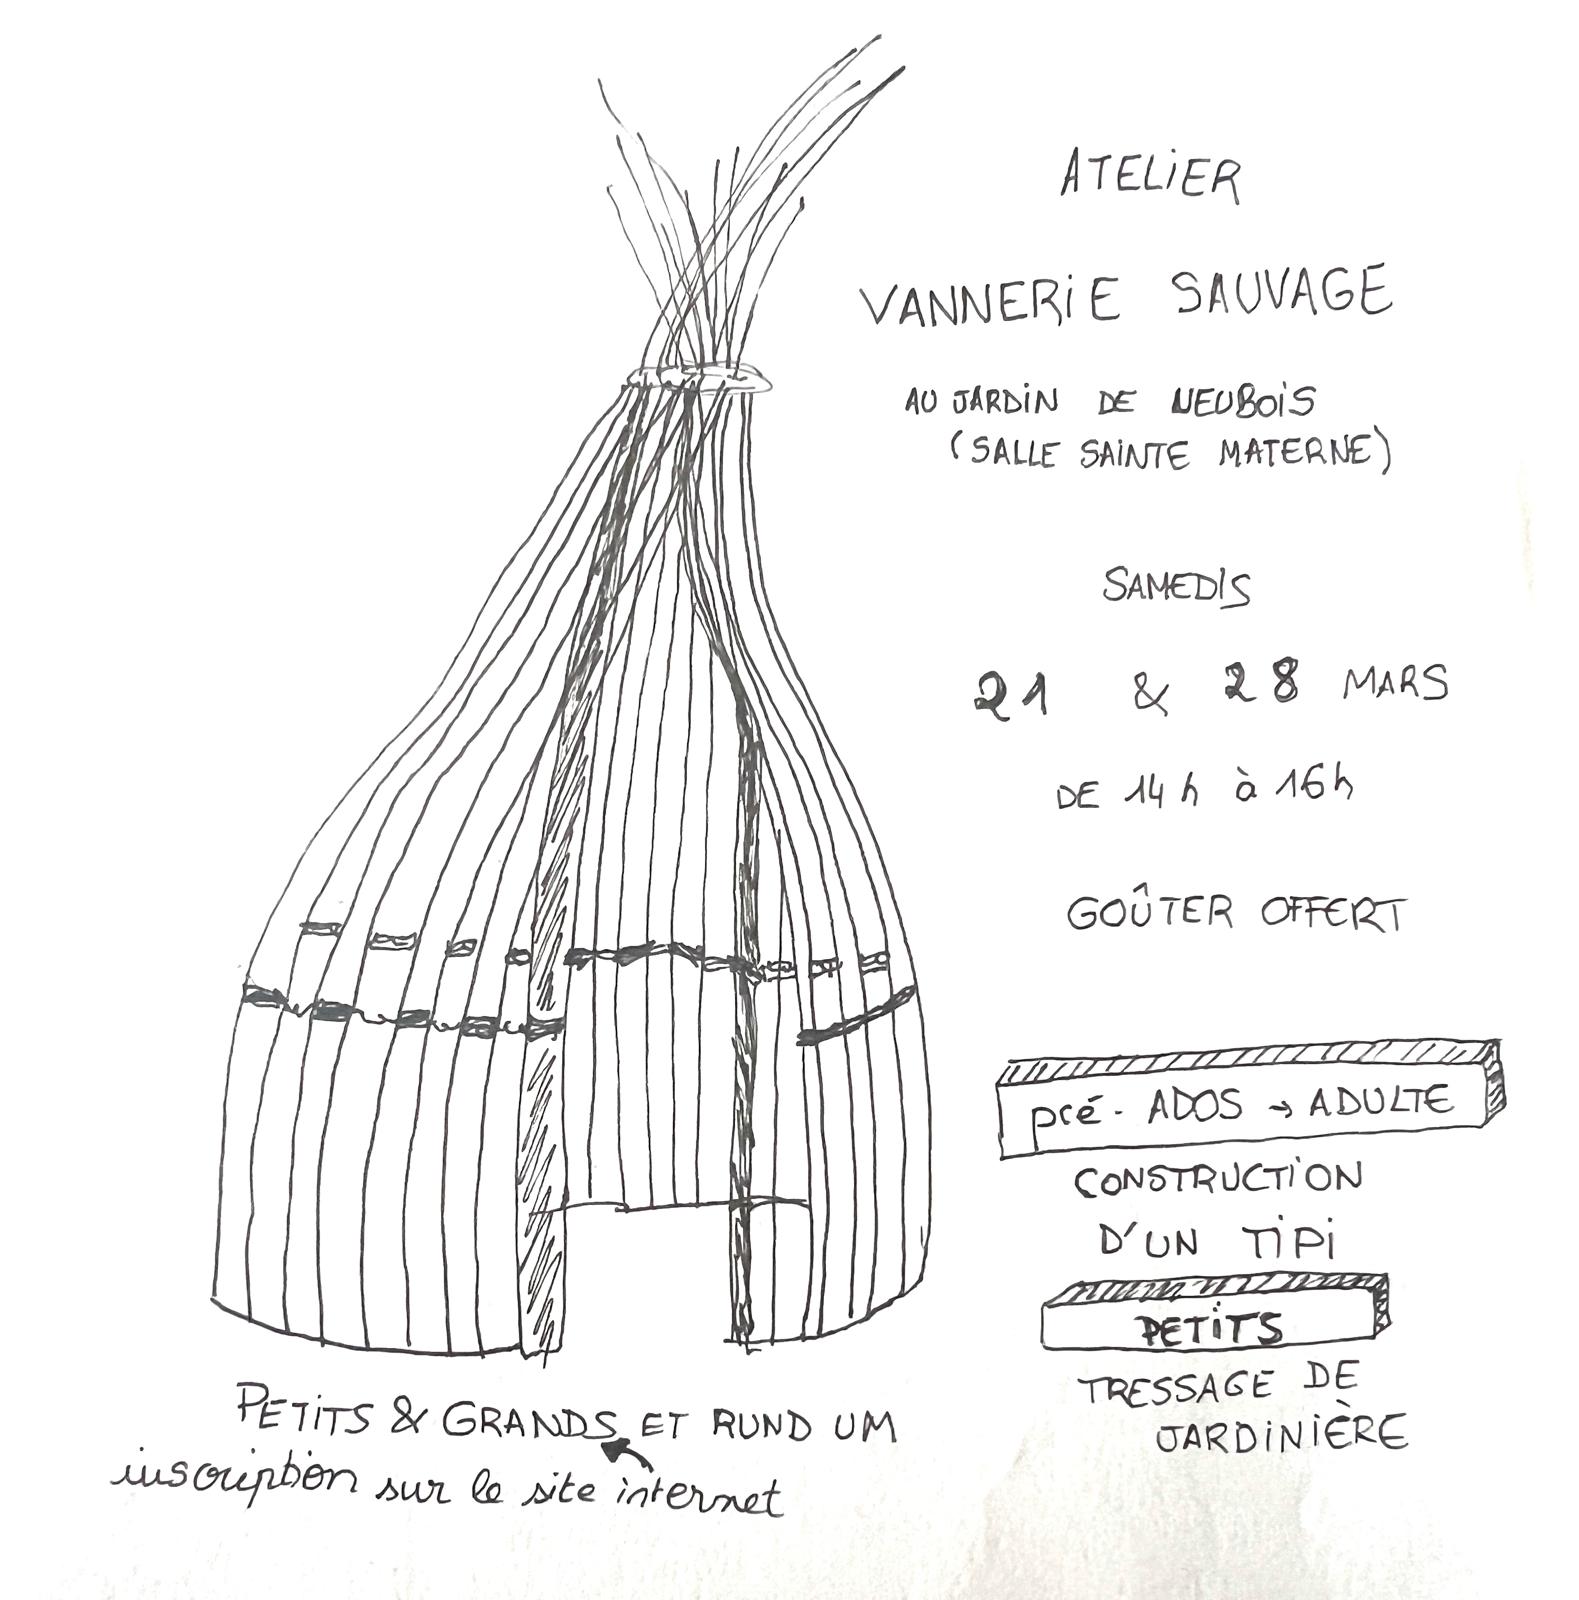 ATELiER
VANNERiE SAUVAGE
AU JARDiN DE NEUBOiS
(SALLE SAiNTE MATERNE)
SAMEDIS
21 & 28 MARS
DE 14h à 16h
GOÛTER OFFERT
pré-ADOS → ADULTE
CONSTRUCTiON
D'UN TiPi
PETiTS
TRESSAGE DE
JARDiNiÈRE
PETiTS & GRANDS ET RUND UM
inscription sur le site internet